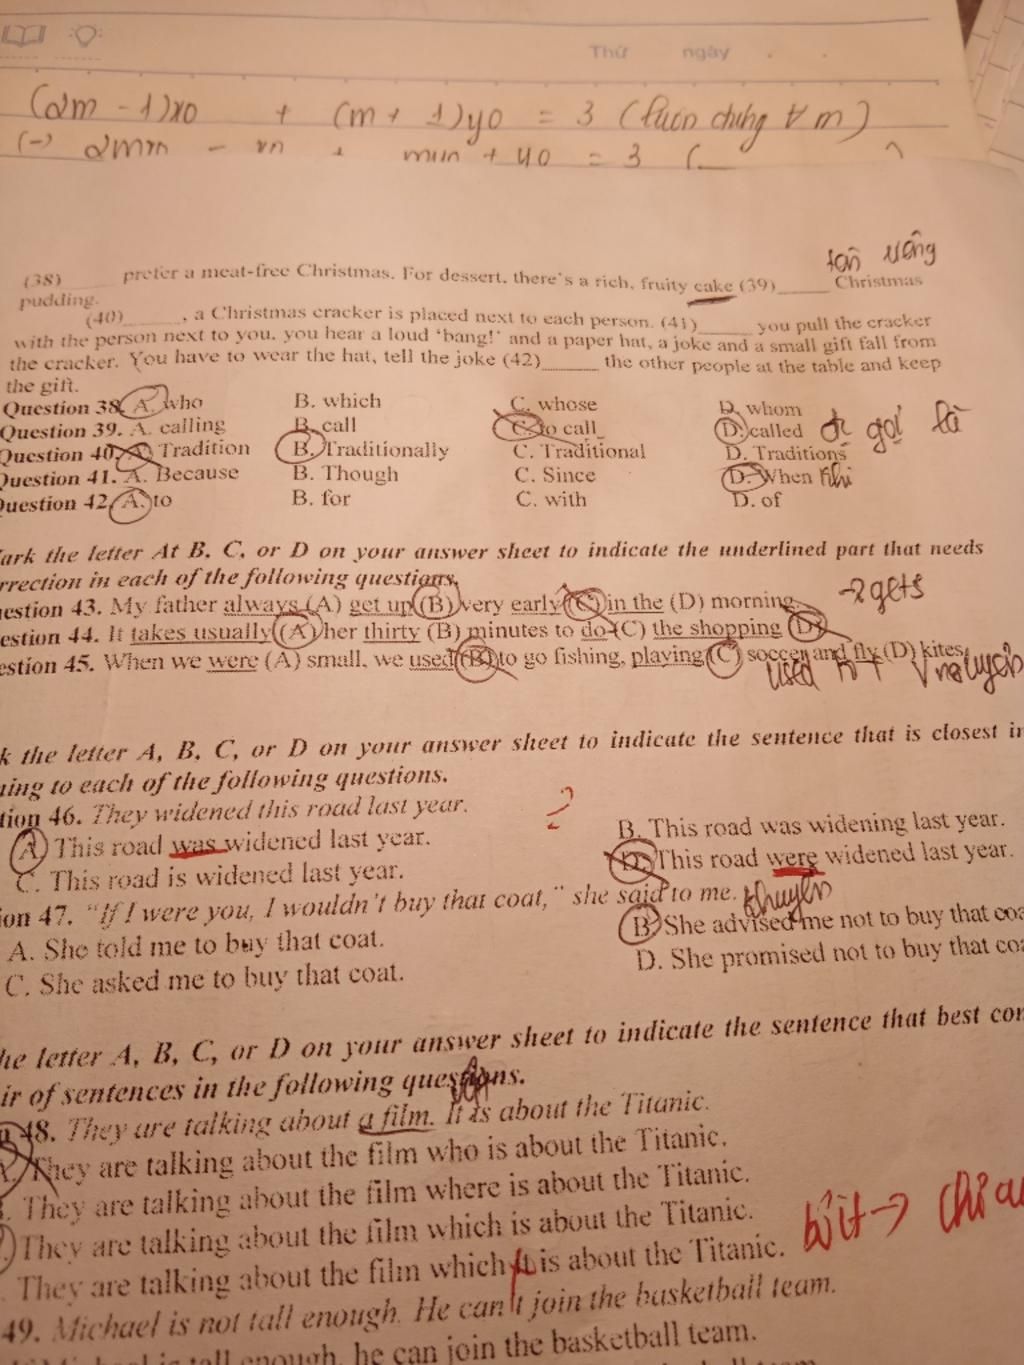 Thứ ngày
(2m - 1)x0 + (m + 1)y0 = 3 (luôn đúng ∀ m)
= 3 (
tồn vông
(38)______ prefer a meat-free Christmas. For dessert, there's a rich, fruity cake (39)______ Christmas
pudding.
(40)______, a Christmas cracker is placed next to each person. (41)______ you pull the cracker
with the person next to you, you hear a loud 'bang!' and a paper hat, a joke and a small gift fall from
the cracker. You have to wear the hat, tell the joke (42)______ the other people at the table and keep
the gift.
Question 38. A. who B. which C. whose D. whom
Question 39. A. calling B. call C. to call D. called đc gọi là
Question 40. A. Tradition B. Traditionally C. Traditional D. Traditions
Question 41. A. Because B. Though C. Since D. When khi
Question 42. A. to B. for C. with D. of
ark the letter At B, C, or D on your answer sheet to indicate the underlined part that needs
rrection in each of the following questions.
estion 43. My father always (A) get up (B) very early (C) in the (D) morning. → gets
estion 44. It takes usually (A) her thirty (B) minutes to do (C) the shopping (D)
estion 45. When we were (A) small, we used (B) to go fishing, playing (C) soccer and fly (D) kites.
used to + V nguyên
k the letter A, B, C, or D on your answer sheet to indicate the sentence that is closest in
ning to each of the following questions.
tion 46. They widened this road last year.
A. This road was widened last year. B. This road was widening last year.
C. This road is widened last year. D. This road were widened last year.
ion 47. "If I were you, I wouldn't buy that coat," she said to me. khuyên
A. She told me to buy that coat. B. She advised me not to buy that coa
C. She asked me to buy that coat. D. She promised not to buy that coa
he letter A, B, C, or D on your answer sheet to indicate the sentence that best com
ir of sentences in the following questions.
vật
48. They are talking about a film. It is about the Titanic.
A. They are talking about the film who is about the Titanic.
. They are talking about the film where is about the Titanic.
They are talking about the film which is about the Titanic.
. They are talking about the film which it is about the Titanic.
49. Michael is not tall enough. He can't join the basketball team.
tall enough, he can join the basketball team.